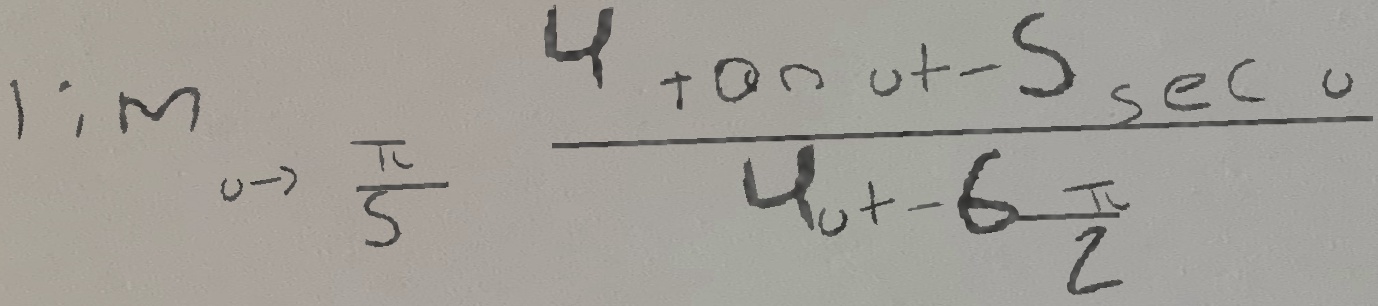 lim_{u \to \frac{\pi}{5}} \frac{4 \tan u + -5 \sec u}{4u + -6 \frac{\pi}{2}}